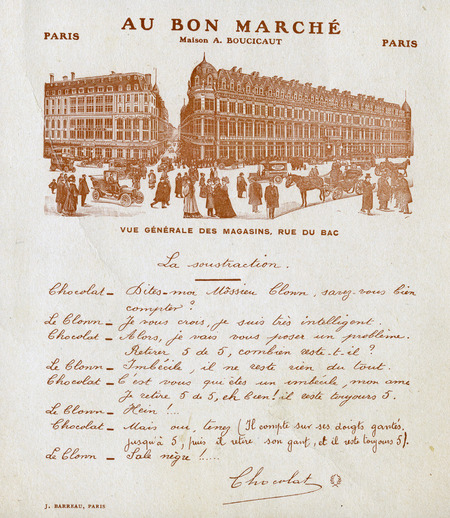 AU BON MARCHÉ
Maison A. BOUCICAUT
PARIS
PARIS
VUE GÉNÉRALE DES MAGASINS, RUE DU BAC
La soustraction.
Chocolat _ Dites-moi Môssieu Clown, savez-vous bien
compter?
Le Clown _ Je vous crois, je suis très intelligent.
Chocolat _ Alors, je vais vous poser un problème.
Retirer 5 de 5, combien reste-t-il?
Le Clown _ Imbécile, il ne reste rien du tout.
Chocolat _ C'est vous qui êtes un imbécile, mon ami
Je retire 5 de 5, eh bien! il reste toujours 5.
Le Clown _ Hein!...
Chocolat _ Mais oui, tenez (Il compte sur ses doigts gantés,
jusqu'à 5, puis il retire son gant, et il reste toujours 5).
Le Clown _ Sale nègre!.....
Chocolat
J. BARREAU, PARIS